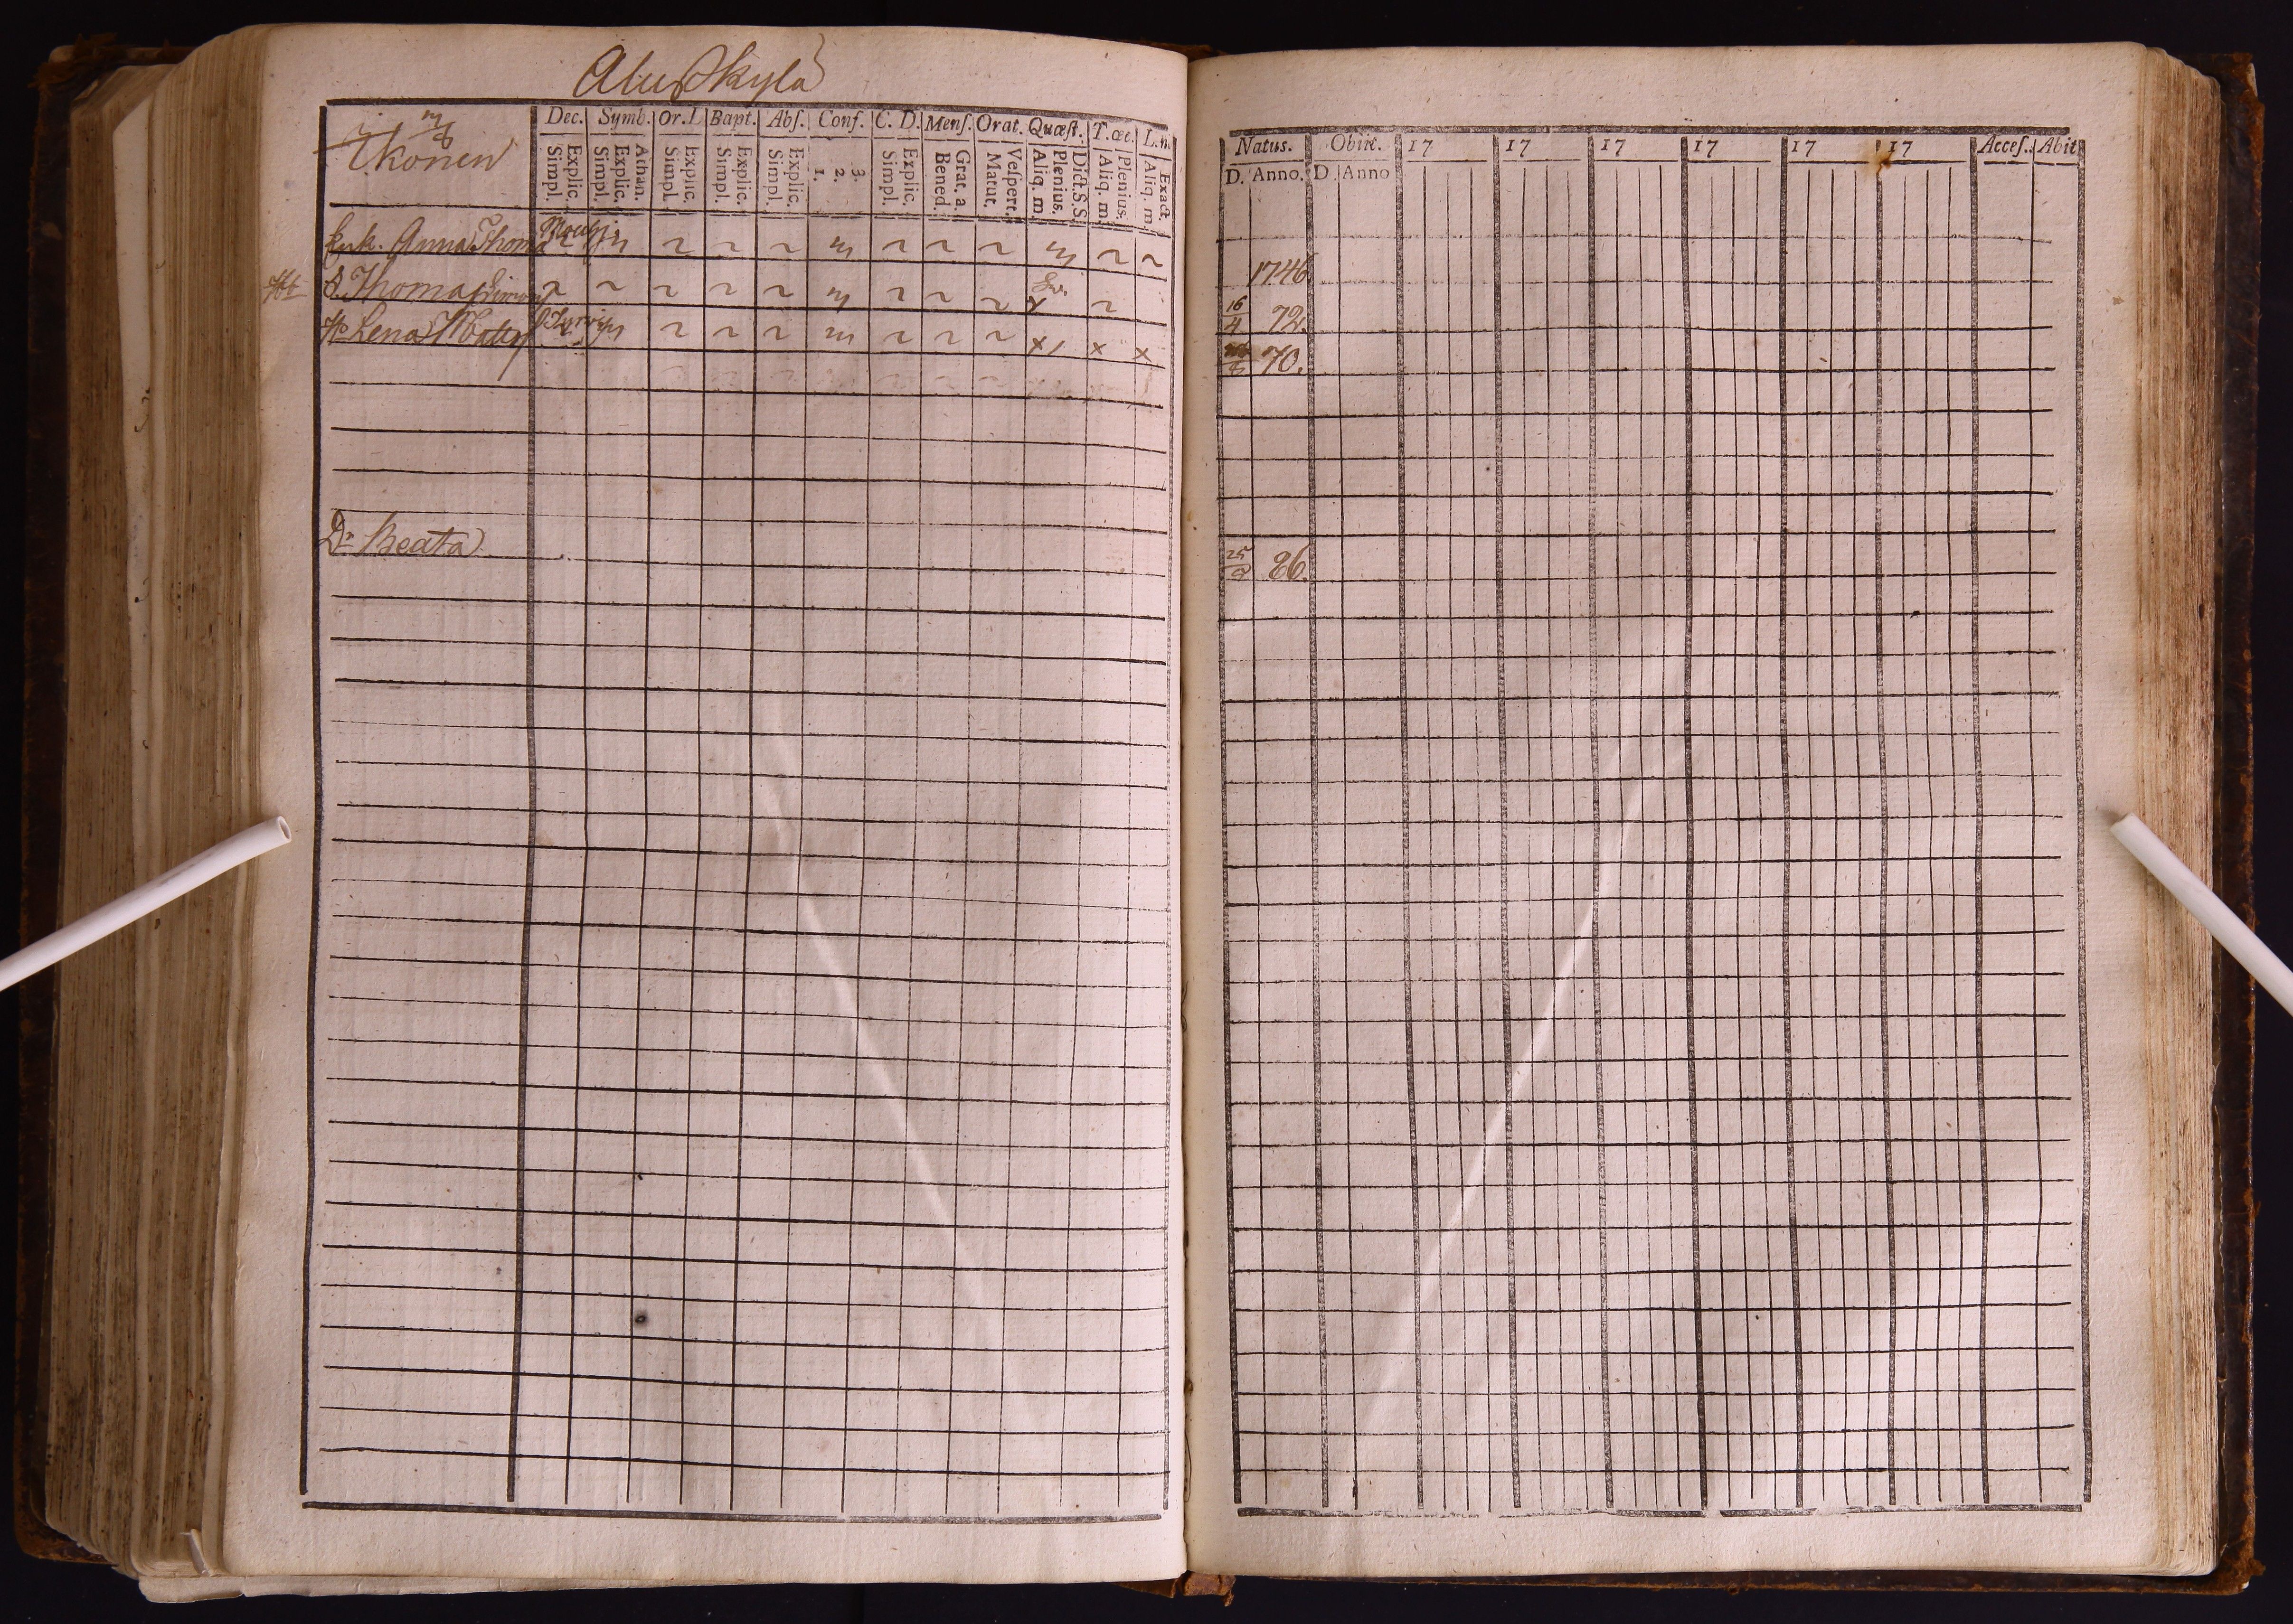 Aluskylä
Ikonen
Dec. Symb. Or. L Bapt. Abs. Conf. C. D. Mens. Orat. Quæst. T. œc. L.n.
Explic. Simpl. Athan. Explic. Simpl. Explic. Simpl. Explic. Simpl. Explic. Simpl. 3. 2. 1. Explic. Simpl. Grat. a. Bened. Vespert. Matut. Dict. S.S. Plenius. Aliq. m. Plenius. Aliq. m. Exact. Aliq. m.
Enk. Anna Thom
S. Thomas Simons
H. Lena Matts
Dr. Beata
Natus. Obiit. 17 17 17 17 17 17 Acces. Abiit
D. Anno. D. Anno
1746
16/4 72.
70.
25/2 86.